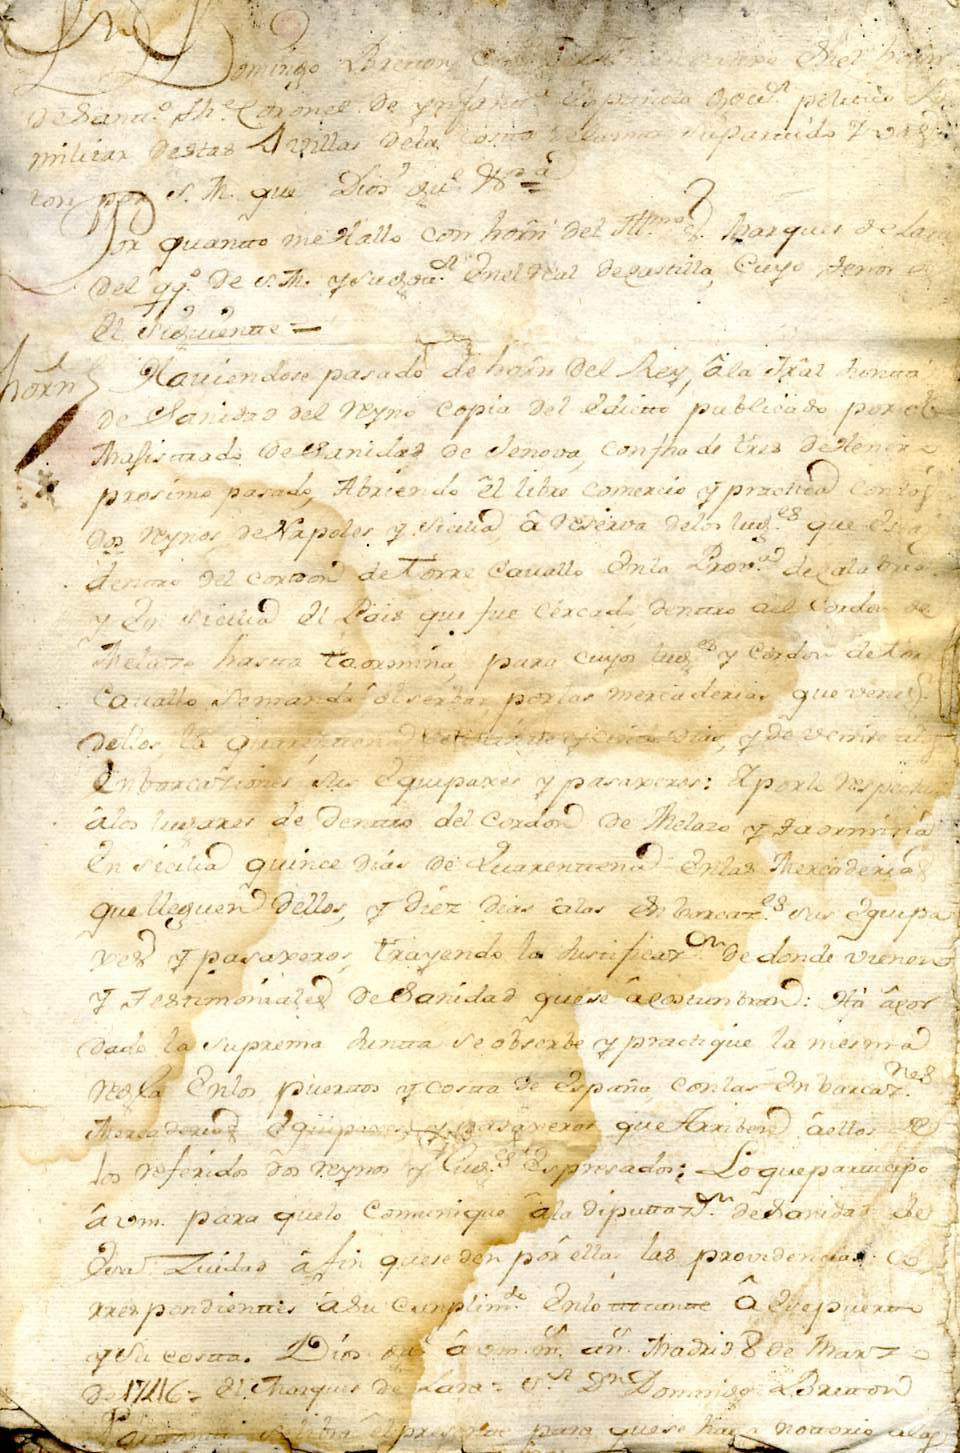 Domingo Bretton
de Santi.º Th.e Coronel de ynfanͭ.ª Española Gov.or politico
militar destas 4 villas dela Costa dela mar supartido
ton por S. M. que Dios gu.e &.ª
Por quanto me Hallo con horn̄ del Ill.mo S. Marques de Lara
del qq.º de S. M. y su Gov.or En el Real de Castilla, Cuyo thenor
El Siguiente =
horn̄
Haviendose pasado de horn̄ del Rey, â la Junta
de Sanidad del Reyno Copia del Edicto publicado por el
Mafistrado de Sanidad de Jenova, con fha de tres de Hener
prosimo pasado, Abriendo êl libre Comercio y practica con los
dos reynos, de Napoles y Sicilia, â reserva delos lug.es que
dentro del cordon de Torre Cavallo En la Prov.a de Calabria
y En Sicilia El Pais que fue cercado, dentro del Cordon de
Melazo hasta Taormina, para cuyos lug.es y Cordon de Tor
Cavallo se manda obserbar, por las mercaderias que veng
dellos, la quarentena y de veinte
Enbarcaziones sus Equipaxes y pasaxeros: Y por lo respectu
â los lugares de dentro del Cordon de Melazo y taormina
En Sicilia quince dias de Quarentena En las Mercaderias
que lleguen dellos, y diez dias âlas Enbarcaz.es sus Equipa
xes y pasaxeros, trayendo la Justificaz.on de donde vienen
y testimoniales de Sanidad que se âcostunbran: Ha âcor
dado la Suprema Junta se obserbe y practique la mesma
regla En los puertos y costa de España, con las Enbarcaz.nes
Mercaderias Equipaxes y pasaxeros que Arriben âellos de
los referidos dos reynos y lug.es Espresados: Lo que participo
â vm. para que lo Comunique âla diputaz.on de Sanidad de
Esa Ziudad â fin que se den por ellas las providencias co
rrespondientes âsu Cunplim.to En lo tocante â Ese puerto
y su costa. Dios gu.e â vm. m.s an.s Madrid 8 de Marzo
de 1746 = El Marques de Lara = S.or Dn Domingo Bretton
para que se haga notorio alos